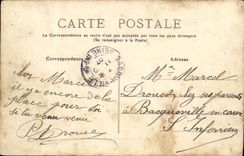 CARTE POSTALE
La Correspondance au recto n'est pas acceptée par tous les pays étrangers
(Se renseigner à la Poste)
Correspondance
Adresse
BACQUEVILLE
SEINE INF
Mr Marcel
Drouet chez ses parents
à Bacqueville en caux
S Inférieure
Mon Marcel
il y a encore de la
place pour toi
si tu veux venir
P Drouet